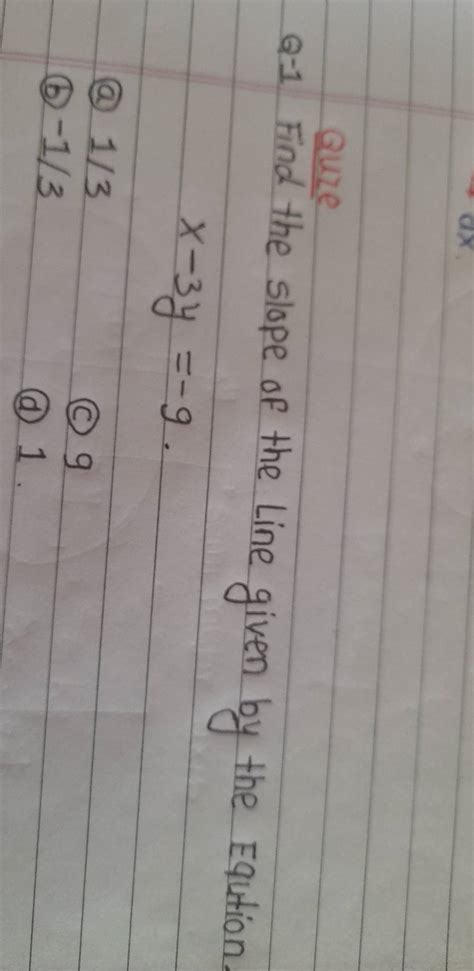 dx
QUIZE
Q-1 Find the slope of the Line given by the Eqution.
x-3y = -9.
ⓐ 1/3 ⓒ 9
ⓑ -1/3 ⓓ 1.